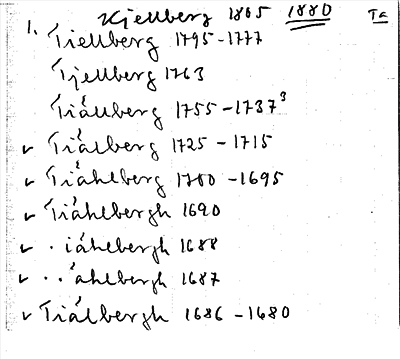 Kjellberg 1805 1880 Ta
1. Tiellberg 1795-1777
Tjellberg 1763
Tiállberg 1755-1737³
✓ Tiálberg 1725-1715
✓ Tiáhlberg 1700-1695
✓ Tiáhlbergh 1690
✓ . iáhlbergh 1688
✓ .. áhlbergh 1687
✓ Tiálbergh 1686-1680